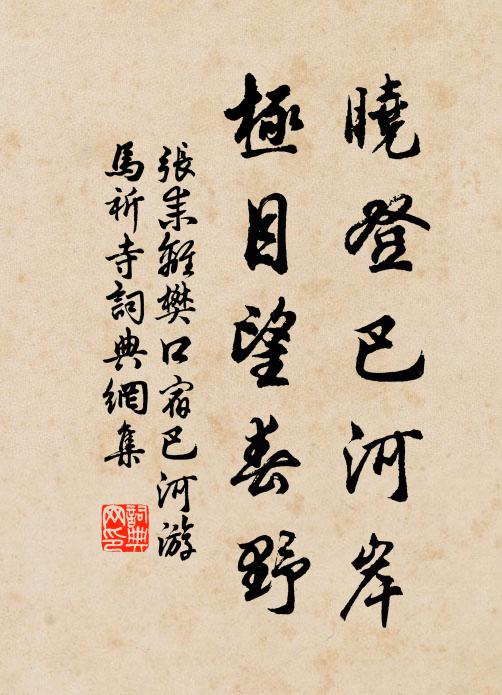 曉登巴河岸
極目望春野
張耒離樊口宿巴河游
馬祈寺詞典網集
詞典網印